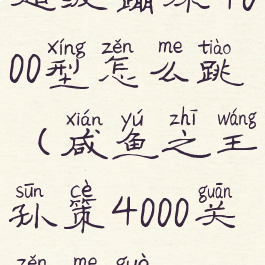 xíng zěn me tiào
00型怎么跳
xián yú zhī wáng
(咸鱼之王
sūn cè guān
孙策4000关
zěn me guò